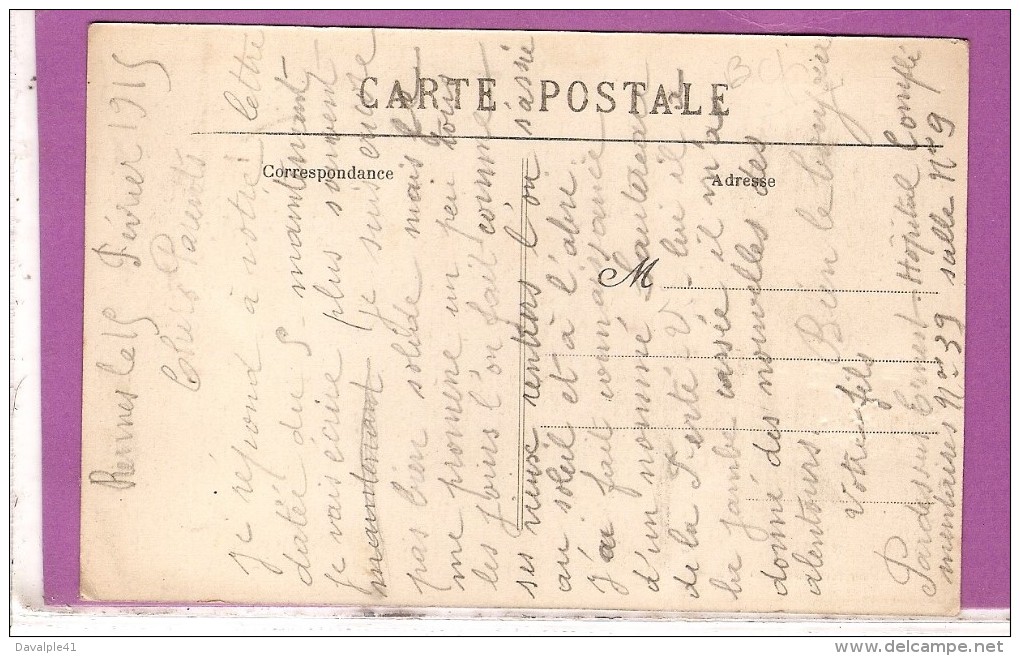 CARTE POSTALE
Correspondance
Adresse
M
Rennes le 15 Février 1915
Chers Parents
Je répond à votre lettre
datée du 5 - maintenant
je vais écrire plus souvent
maintenant je suis encore
pas bien solide mais je
me promène un peu tous
les jours l'on fait comme
ses vieux rentiers l'on s'assie
au soleil et à l'abri
j'ai fait connaissance
d'un nommé Hautereau
de la Ferté V - lui il a
la jambe cassée il m'a
donné des nouvelles des
alentours Bien le bonjour
Votre fils
Pardessus Ernest - Hôpital Complé
mentaires N° 39 salle N° 9
Davalple41
www.delcampe.net